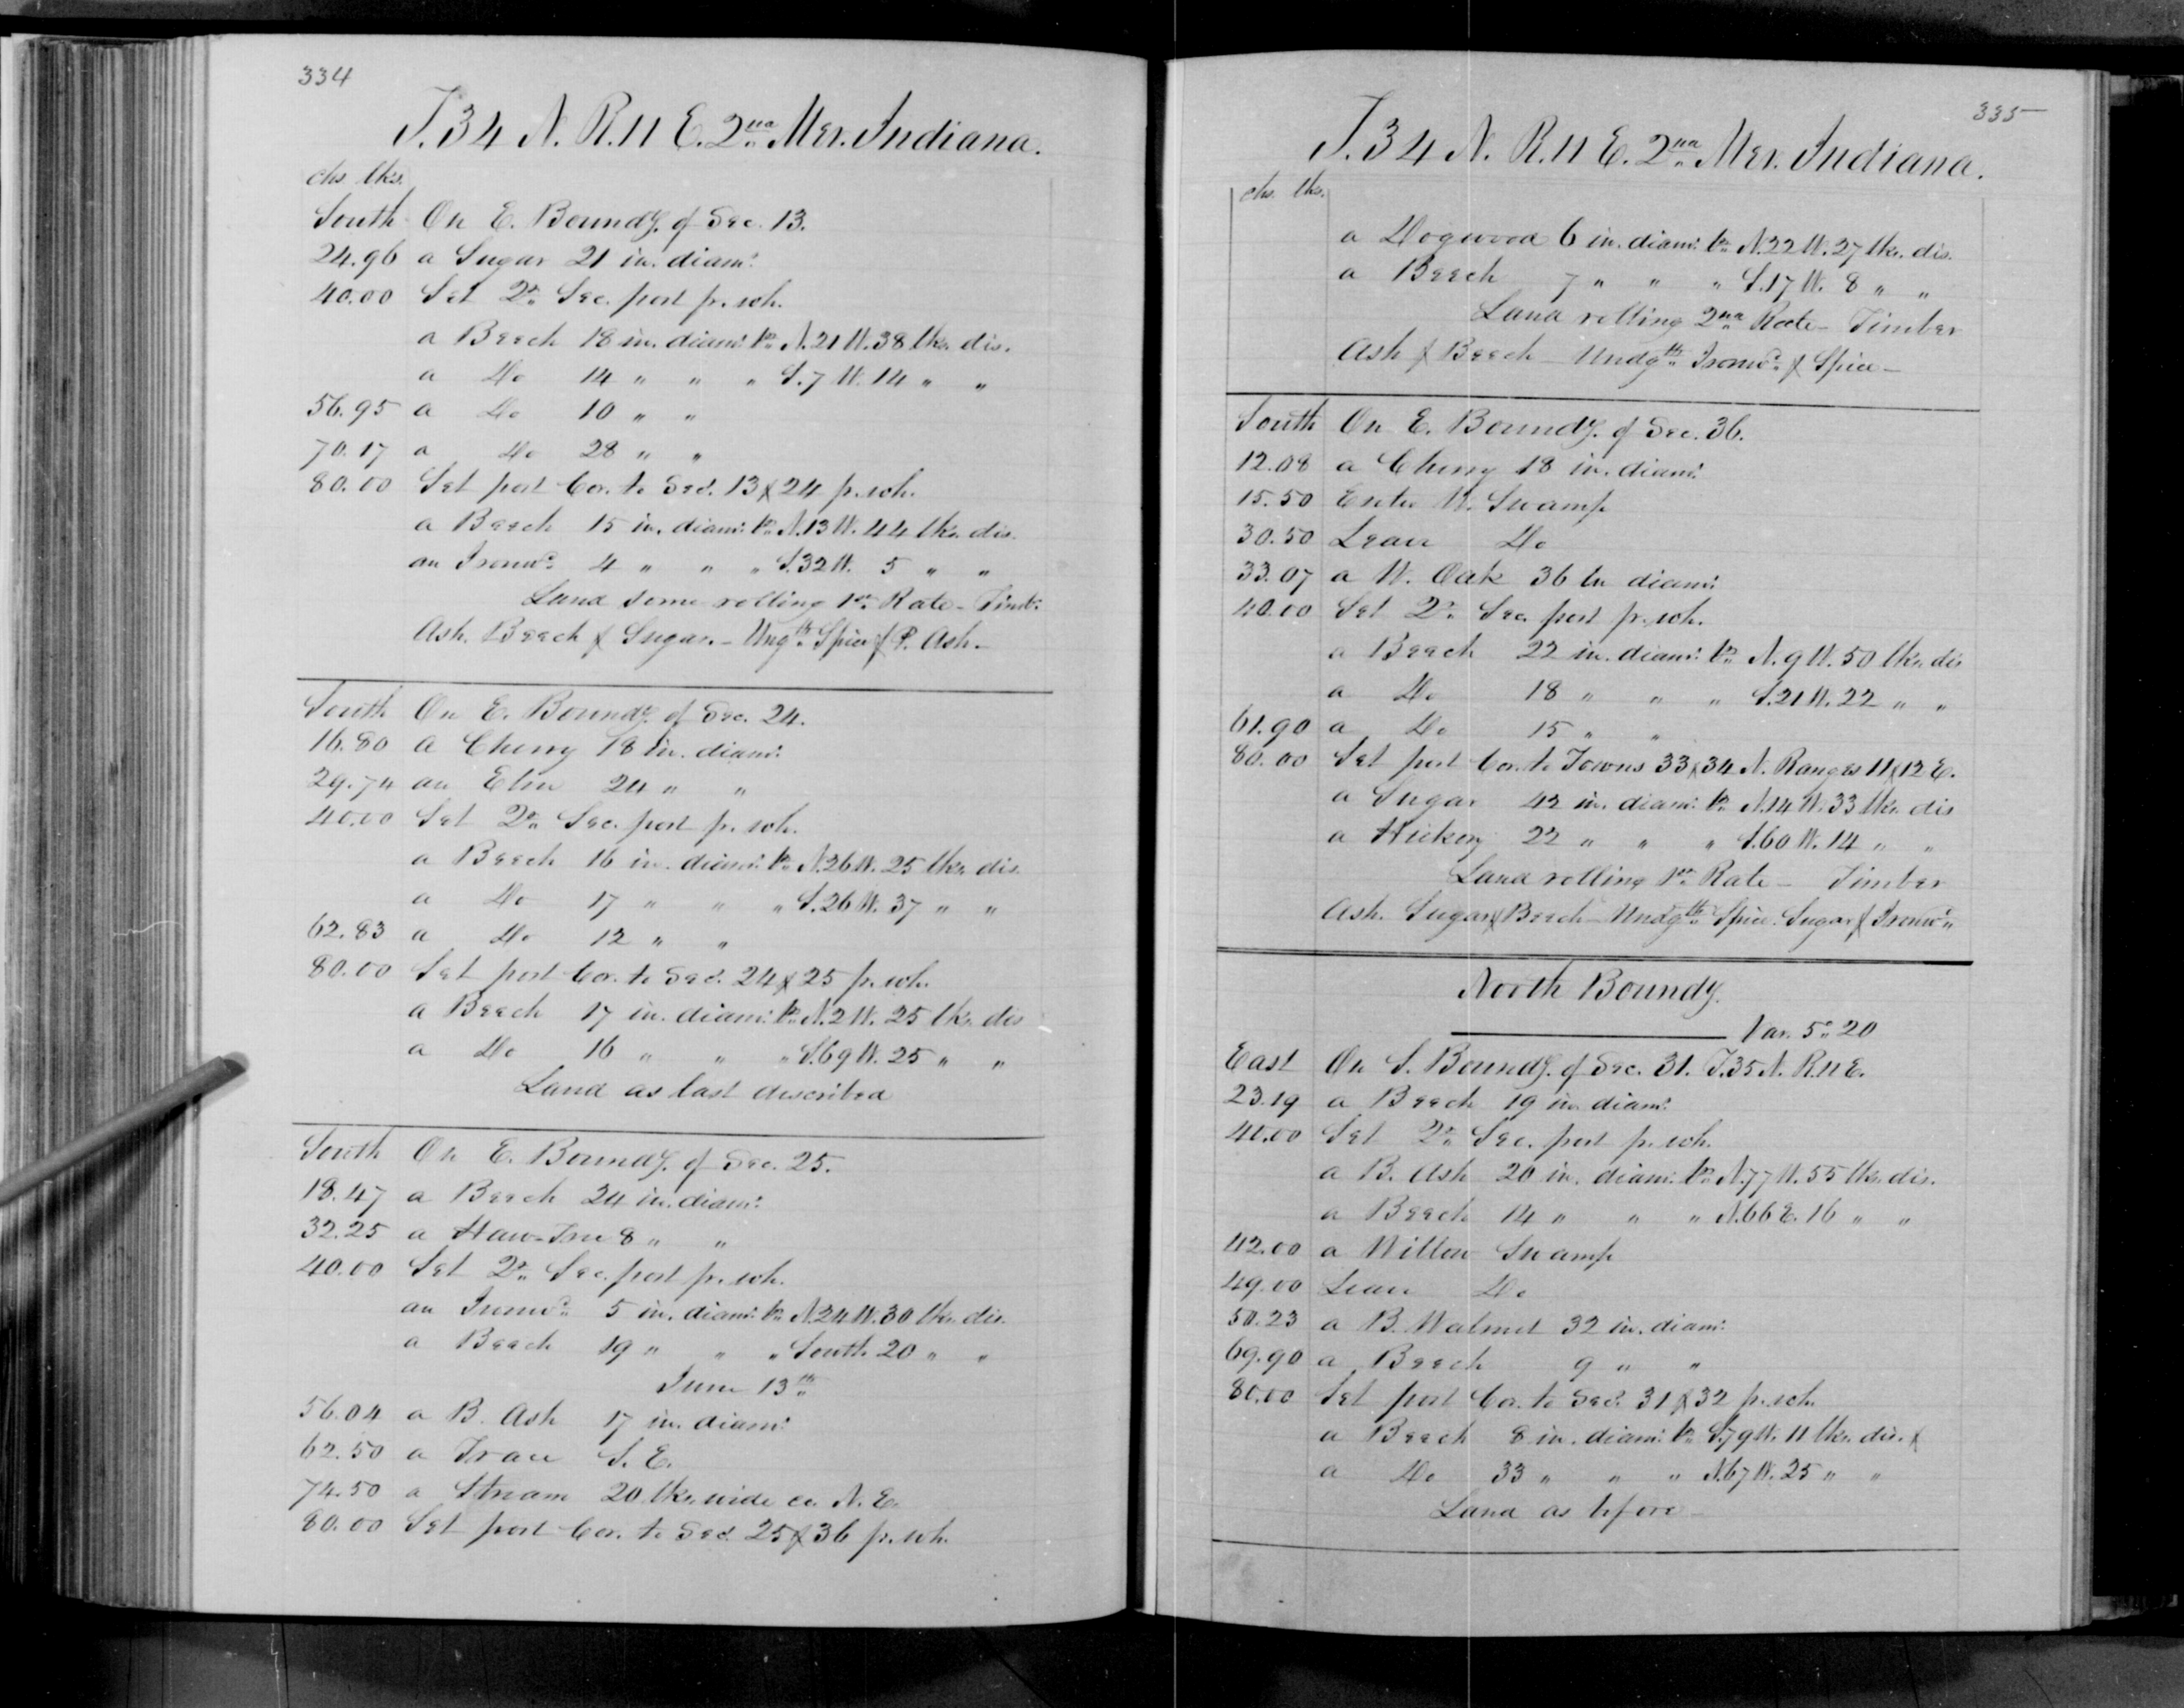 334
T. 34 N. R. 11 E. 2nd Mer. Indiana.
chs. lks.
South On E. Boundy. of Sec. 13.
24.96 a Sugar 21 in. diamr.
40.00 Set Qr. Sec. post pr. sch.
a Beech 18 in. diamr. br. N. 21 W. 38 lks. dis.
a Do 14 " " " S. 7 W. 14 " "
56.95 a Do 10 " "
70.17 a Do 28 " "
80.00 Set post Cor. to Secs. 13 & 24 pr. sch.
a Beech 15 in. diamr. br. N. 13 W. 44 lks. dis.
an Ironwd. 4 " " " S. 32 W. 5 " "
Land some rolling 1st. Rate - Timbr.
Ash. Beech & Sugar. - Ungth. Spice & P. Ash. -
South On E. Boundy. of Sec. 24.
16.80 a Cherry 18 in. diamr.
29.74 an Elm 24 " "
40.00 Set Qr. Sec. post pr. sch.
a Beech 16 in. diamr. br. N. 26 W. 25 lks. dis.
a Do 17 " " " S. 26 W. 37 " "
62.83 a Do 12 " "
80.00 Set post Cor. to Secs. 24 & 25 pr. sch.
a Beech 17 in. diamr. br. N. 2 W. 25 lks. dis
a Do 16 " " " S. 69 W. 25 " "
Land as last described
South On E. Boundy. of Sec. 25.
18.47 a Beech 24 in. diamr.
32.25 a Haw-Tree 8 " "
40.00 Set Qr. Sec. post pr. sch.
an Ironwd. 5 in. diamr. br. N. 24 W. 30 lks. dis.
a Beech 19 " " " South 20 " "
June 13th.
56.04 a B. Ash 17 in. diamr.
62.50 a Trace S. E.
74.50 a Stream 20 lks. wide co. N. E.
80.00 Set post Cor. to Secs. 25 & 36 pr. sch.
335
T. 34 N. R. 11 E. 2nd Mer. Indiana.
chs. lks.
a Dogwood 6 in. diamr. br. N. 22 W. 27 lks. dis.
a Beech 7 " " " S. 17 W. 8 " "
Land rolling 2nd Rate - Timber
Ash & Beech - Undgth. Ironwd. & Spice -
South On E. Boundy. of Sec. 36.
12.08 a Cherry 18 in. diamr.
15.50 Enter W. Swamp
30.50 Leave Do
33.07 a W. Oak 36 in diamr.
40.00 Set Qr. Sec. post pr. sch.
a Beech 22 in. diamr. br. N. 9 W. 50 lks. dis
a Do 18 " " " S. 21 W. 22 " "
61.90 a Do 15 " "
80.00 Set post Cor. to Towns 33 & 34 N. Ranges 11 & 12 E.
a Sugar 42 in. diamr. br. N. 14 W. 33 lks. dis
a Hickory 22 " " " S. 60 W. 14 " "
Land rolling 1st. Rate - Timber
Ash. Sugar & Beech - Undgth. Spice. Sugar & Ironwd.
North Boundy.
Var. 5° 20
East On S. Boundy. of Sec. 31. T. 35 N. R. 11 E.
23.19 a Beech 19 in diamr.
40.00 Set Qr. Sec. post pr. sch.
a B. Ash 20 in. diamr. br. N. 77 W. 55 lks. dis.
a Beech 14 " " " N. 66 E. 16 " "
42.00 a Willow Swamp
49.00 Leave Do
50.23 a B. Walnut 32 in. diamr.
69.90 a Beech 9 " "
80.00 Set post Cor. to Secs. 31 & 32 pr. sch.
a Beech 8 in. diamr. br. S. 79 W. 11 lks. dis. &
a Do 33 " " " N. 67 W. 25 " "
Land as before -